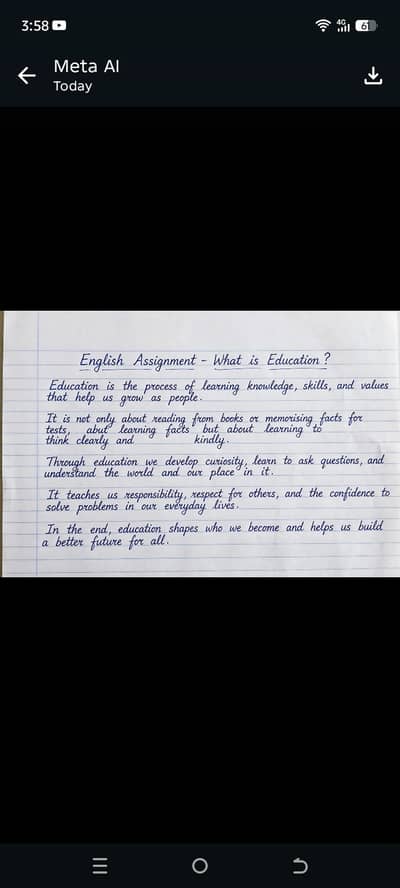 3:58
4G
61
Meta AI
Today
English Assignment - What is Education?
Education is the process of learning knowledge, skills, and values
that help us grow as people.
It is not only about reading from books or memorising facts for
tests, abut learning facts but about learning to
think clearly and kindly.
Through education we develop curiosity, learn to ask questions, and
understand the world and our place in it.
It teaches us responsibility, respect for others, and the confidence to
solve problems in our everyday lives.
In the end, education shapes who we become and helps us build
a better future for all.